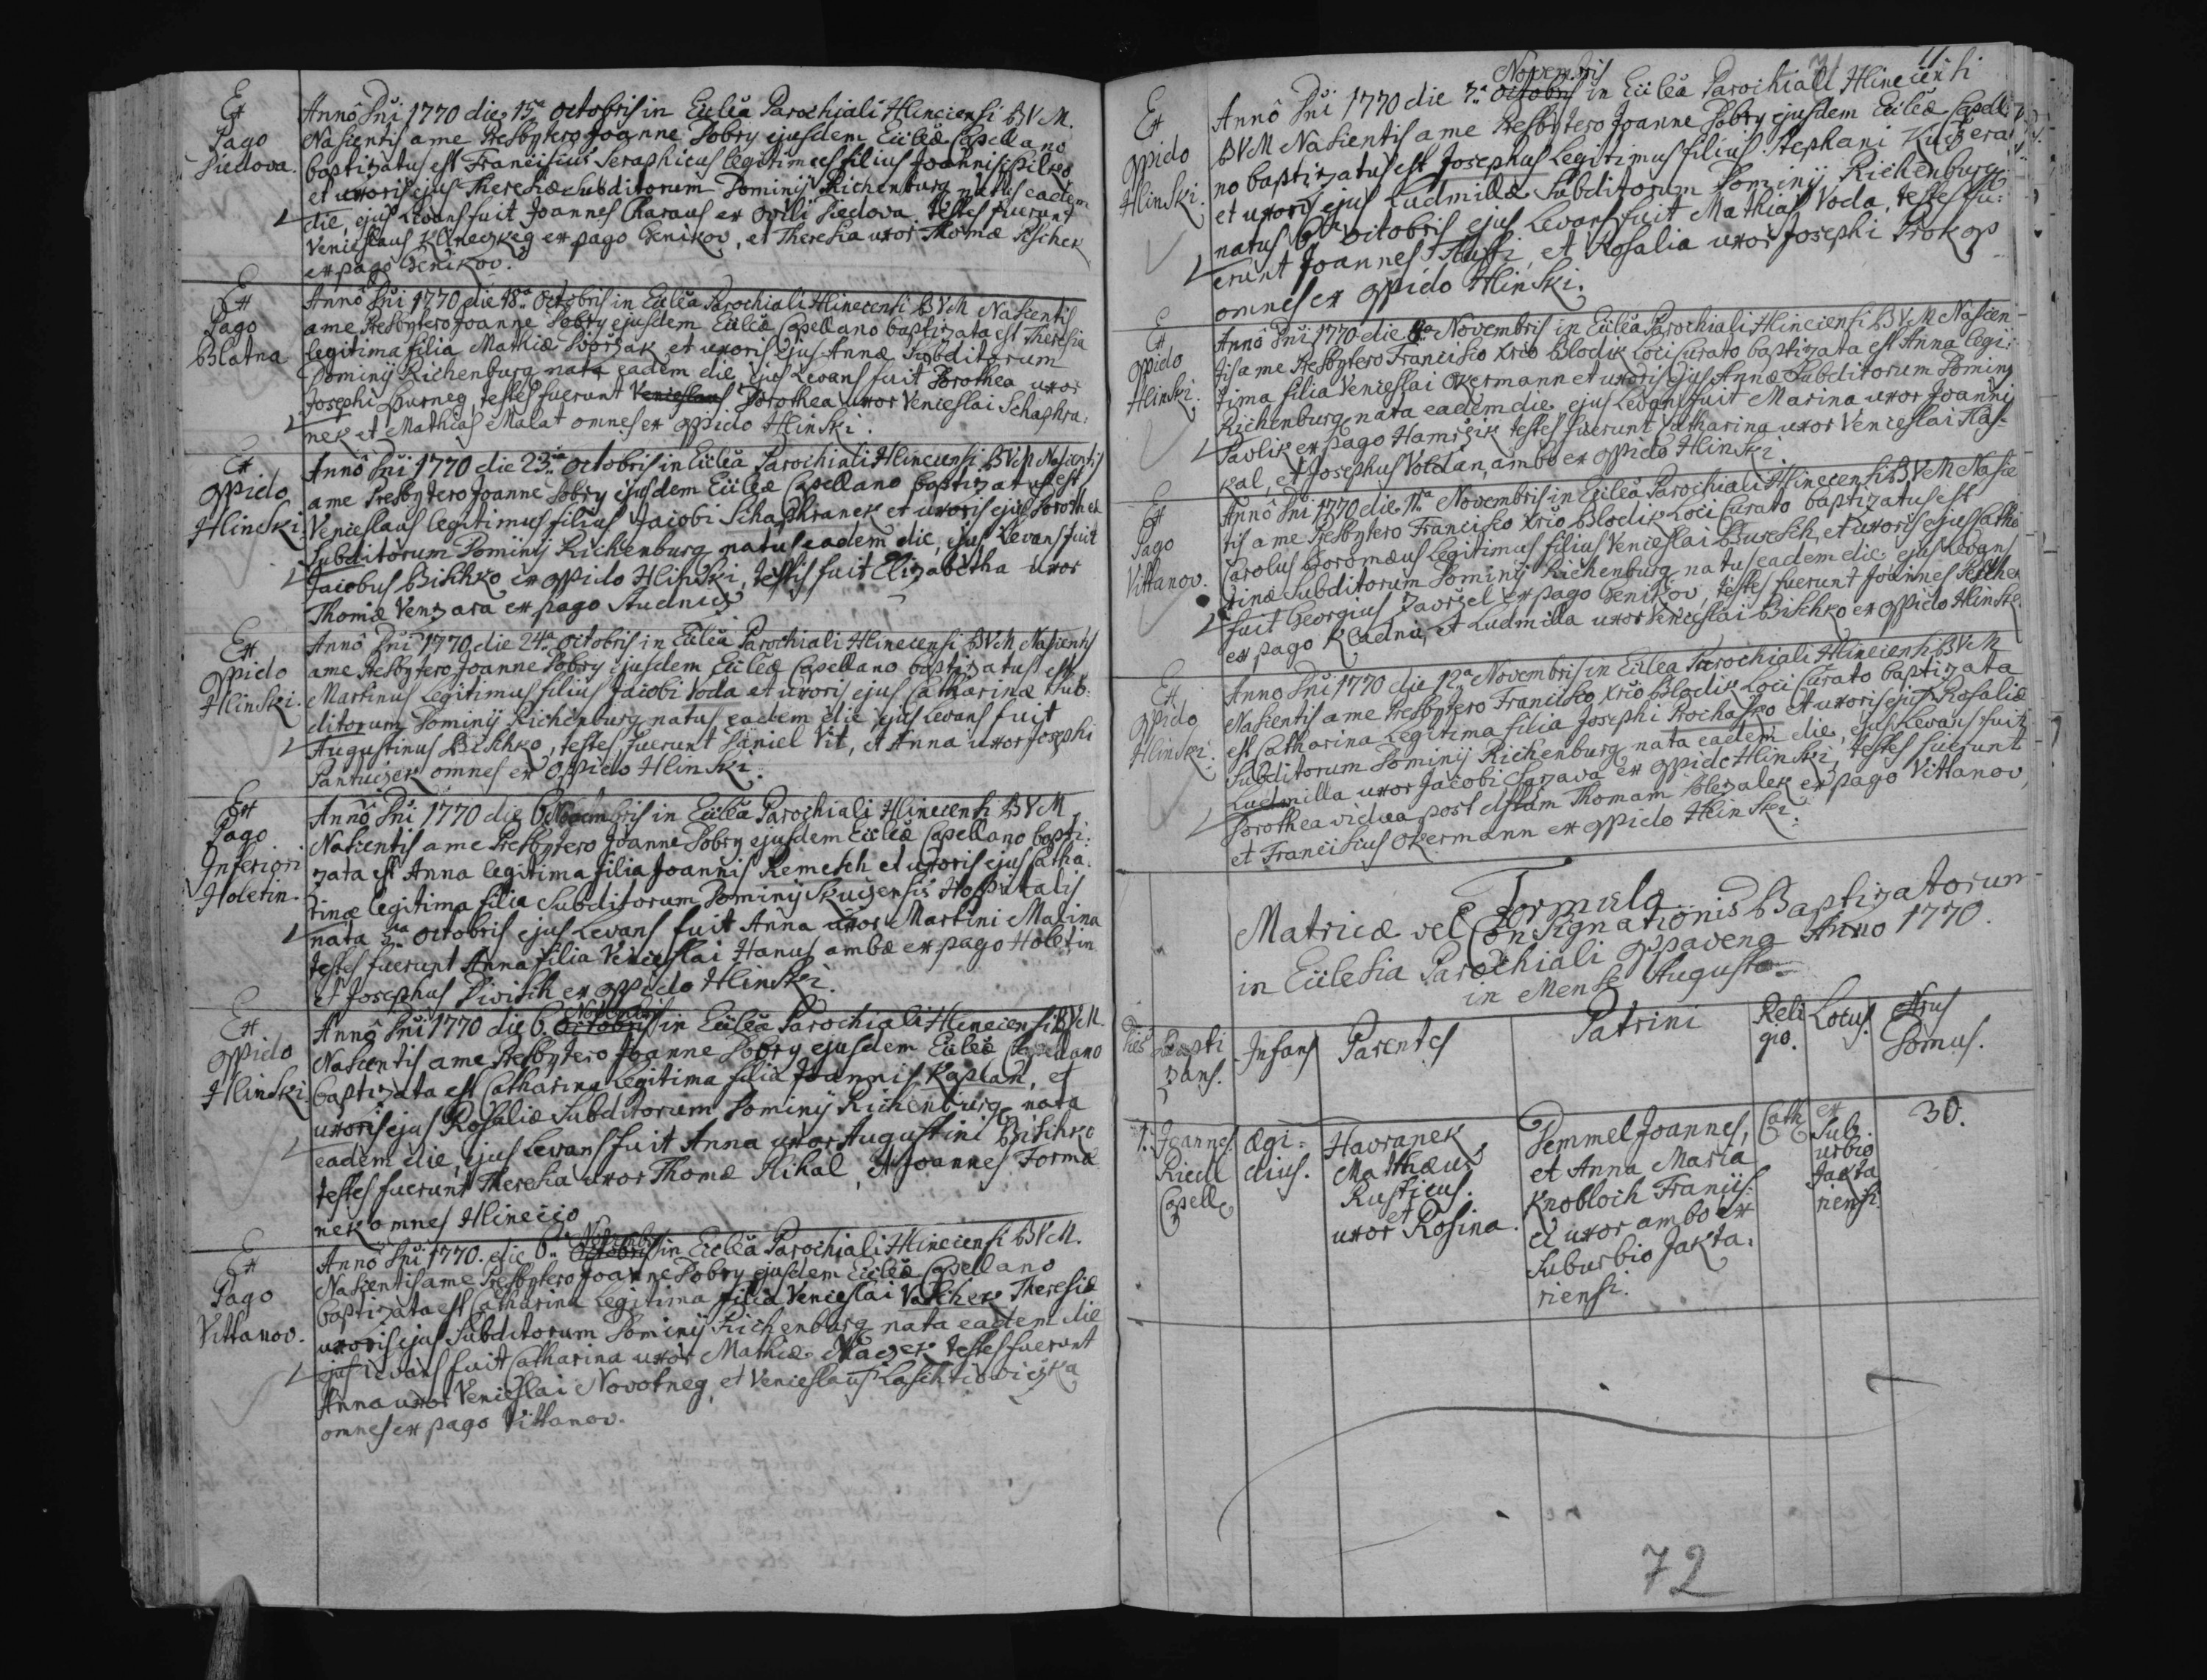 Ex
Pago
Siedova.
Anno Dni 1770 die 15a octobris in Eccleâ Parochiali Hlinecensi B V M.
Nascentis a me Presbytero Joanne Dobry ejusdem Eccleæ Capellano
baptizatus est Franciscus Seraphicus legitimus filius Joannis
et uxoris ejus Theresiæ Subditorum Dominij Richenburg natus eadem
die, ejus Levans fuit Joannes Charaus ex Siedova. testes fuerunt
Venceslaus ex pago Czenikov, et Theresia uxor Thomæ Peschek
ex pago Czenikov.
Ex
Pago
Blatna
Anno Dni 1770 die 18a Octobris in Eccleâ Parochiali Hlinecensi B V M Nascentis
a me Presbytero Joanne Dobry ejusdem Eccleæ Capellano baptizata est Theresia
legitima filia Mathiæ Dvorzak et uxoris ejus Annæ Subditorum
Dominij Richenburg nata eadem die ejus Levans fuit Dorothea uxor
Josephi testes fuerunt Venceslaus Dorothea uxor Venceslai Schaphra:
nek et Mathias Malat omnes ex oppido Hlinski.
Ex
oppido
Hlinski.
Anno Dni 1770 die 23a octobris in Eccleâ Parochiali Hlinecensi B V M Nascentis
a me Presbytero Joanne Dobry ejusdem Eccleæ Capellano baptizatus est
Venceslaus legitimus filius Jacobi Schaphranek et uxoris ejus Dorotheæ
Subditorum Dominij Richenburg natus eadem die, ejus Levans fuit
Jacobus Bischko ex oppido Hlinski, testis fuit Elizabetha uxor
Thomæ Venzara ex pago Studnicz
Ex
oppido
Hlinski.
Anno Dni 1770 die 24a octobris in Eccleâ Parochiali Hlinecensi B V M Nascentis
a me Presbytero Joanne Dobry ejusdem Eccleæ Capellano baptizatus est
Martinus Legitimus filius Jacobi Voda et uxoris ejus Catharinæ Sub:
ditorum Dominij Richenburg natus eadem die ejus Levans fuit
Augustinus Bischko, testes fuerunt Daniel Vit, et Anna uxor Josephi
Pantuczek omnes ex oppido Hlinski.
Ex
Pago
Inferiori
Holetin.
Anno Dni 1770 die 6 Novembris in Eccleâ Parochiali Hlinecensi B V M
Nascentis a me Presbytero Joanne Dobry ejusdem Eccleæ Capellano bapti:
zata est Anna legitima filia Joannis Remesch et uxoris ejus Catha:
rinæ legitima filia Subditorum Dominij Skuczensis Hospitalis
nata 3a octobris ejus Levans fuit Anna uxor Martini Malina
testes fuerunt Anna filia Venceslai Hanus ambæ ex pago Holetin
et Josephus Divisch ex oppido Hlinski.
Ex
oppido
Hlinski
Novembris
Anno Dni 1770 die 6. Octobris in Eccleâ Parochiali Hlinecensi B V M.
Nascentis a me Presbytero Joanne Dobry ejusdem Eccleæ Capellano
baptizata est Catharina Legitima filia Joannis Kaplan, et
uxoris ejus Rosaliæ Subditorum Dominij Richenburg nata
eadem die, ejus Levans fuit Anna uxor Augustini Bischko
testes fuerunt Theresia uxor Thomæ Hihal, et Joannes Forma
nek omnes Hlinecio
Ex
Pago
Vittanov.
Novembris
Anno Dni 1770. die 6a Octobris in Eccleâ Parochiali Hlinecensi B V M.
Nascentis a me Presbytero Joanne Dobry ejusdem Eccleæ Capellano
baptizata est Catharina Legitima filia Venceslai Vaschek Theresiæ
uxoris ejus Subditorum Dominij Richenburg nata eadem die
ejus Levans fuit Catharina uxor Mathiæ Maczek testes fuerunt
Anna uxor Venceslai Novotneg, et Venceslaus
omnes ex pago Vittanov.
71
11
Ex
oppido
Hlinski.
Novembris
Anno Dni 1770 die 7a octobris in Eccleâ Parochiali Hlinecensi
B V M Nascentis a me Presbytero Joanne Dobry ejusdem Eccleæ Capella:
no baptizatus est Josephus Legitimus filius Stephani Kuczera
et uxoris ejus Ludmillæ Subditorum Dominij Richenburg
natus 6a octobris ejus Levans fuit Mathias Voda, testes fu:
erunt Joannes et Rosalia uxor Josephi Prokop
omnes ex oppido Hlinski.
Ex
oppido
Hlinski.
Anno Dni 1770 die 8a Novembris in Eccleâ Parochiali Hlinecensi B V M Nascen
tis a me Presbytero Francisco Xrio Blodik Loci Curato baptizata est Anna legi:
tima filia Venceslai Okermann et uxoris ejus Annæ Subditorum Dominij
Richenburg nata eadem die ejus Levans fuit Marina uxor Joannis
Pavlik ex pago Hamrzik testes fuerunt Catharina uxor Venceslai Tlas:
kal, et Josephus Voldan, ambo ex oppido Hlinski.
Ex
Pago
Vittanov.
Anno Dni 1770 die 11a Novembris in Eccleâ Parochiali Hlinecensi B V M Nascen
tis a me Presbytero Francisco Xrio Blodik Loci Curato baptizatus est
Carolus Boromæus legitimus filius Venceslai Buresch, et uxoris ejus Catha
rinæ Subditorum Dominij Richenburg natus eadem die ejus Levans
fuit Georgius Zavrzel ex pago Czenikov, testes fuerunt Joannes Peschek
ex pago Kladna, et Ludmilla uxor Venceslai Bischko ex oppido Hlinski.
Ex
oppido
Hlinski.
Anno Dni 1770 die 12a Novembris in Eccleâ Parochiali Hlinecensi B V M
Nascentis a me Presbytero Francisco Xrio Blodik Loci Curato baptizata
est Catharina Legitima filia Josephi Prochasko et uxoris ejus Rosaliæ
Subditorum Dominij Richenburg nata eadem die, ejus Levans fuit
Ludmilla uxor Jacobi Sazava ex oppido Hlinski, testes fuerunt
Dorothea vidua post Thomam Dolezalek ex pago Vittanov,
et Franciscus Okermann ex oppido Hlinski.
Formula
Matricæ vel Consignationis Baptizatorum
in Ecclesia Parochiali Oppavena Anno 1770.
in Mense Augusto
Dies
Bapti
zans.
Infans
Parentes
Patrini
Reli
gio.
Locus.
Nrus
Domus.
1.
Joannes
Riedl
Capell
Ægi:
dius.
Havranek
Matthæus
Rusticus.
et
uxor Rosina.
Demmel Joannes,
et Anna Maria
Knobloch Francis:
et uxor ambo ex
Suburbio Jakta:
riensi.
Cath
ex
Sub.
urbio
Jakta
riensi
30.
72